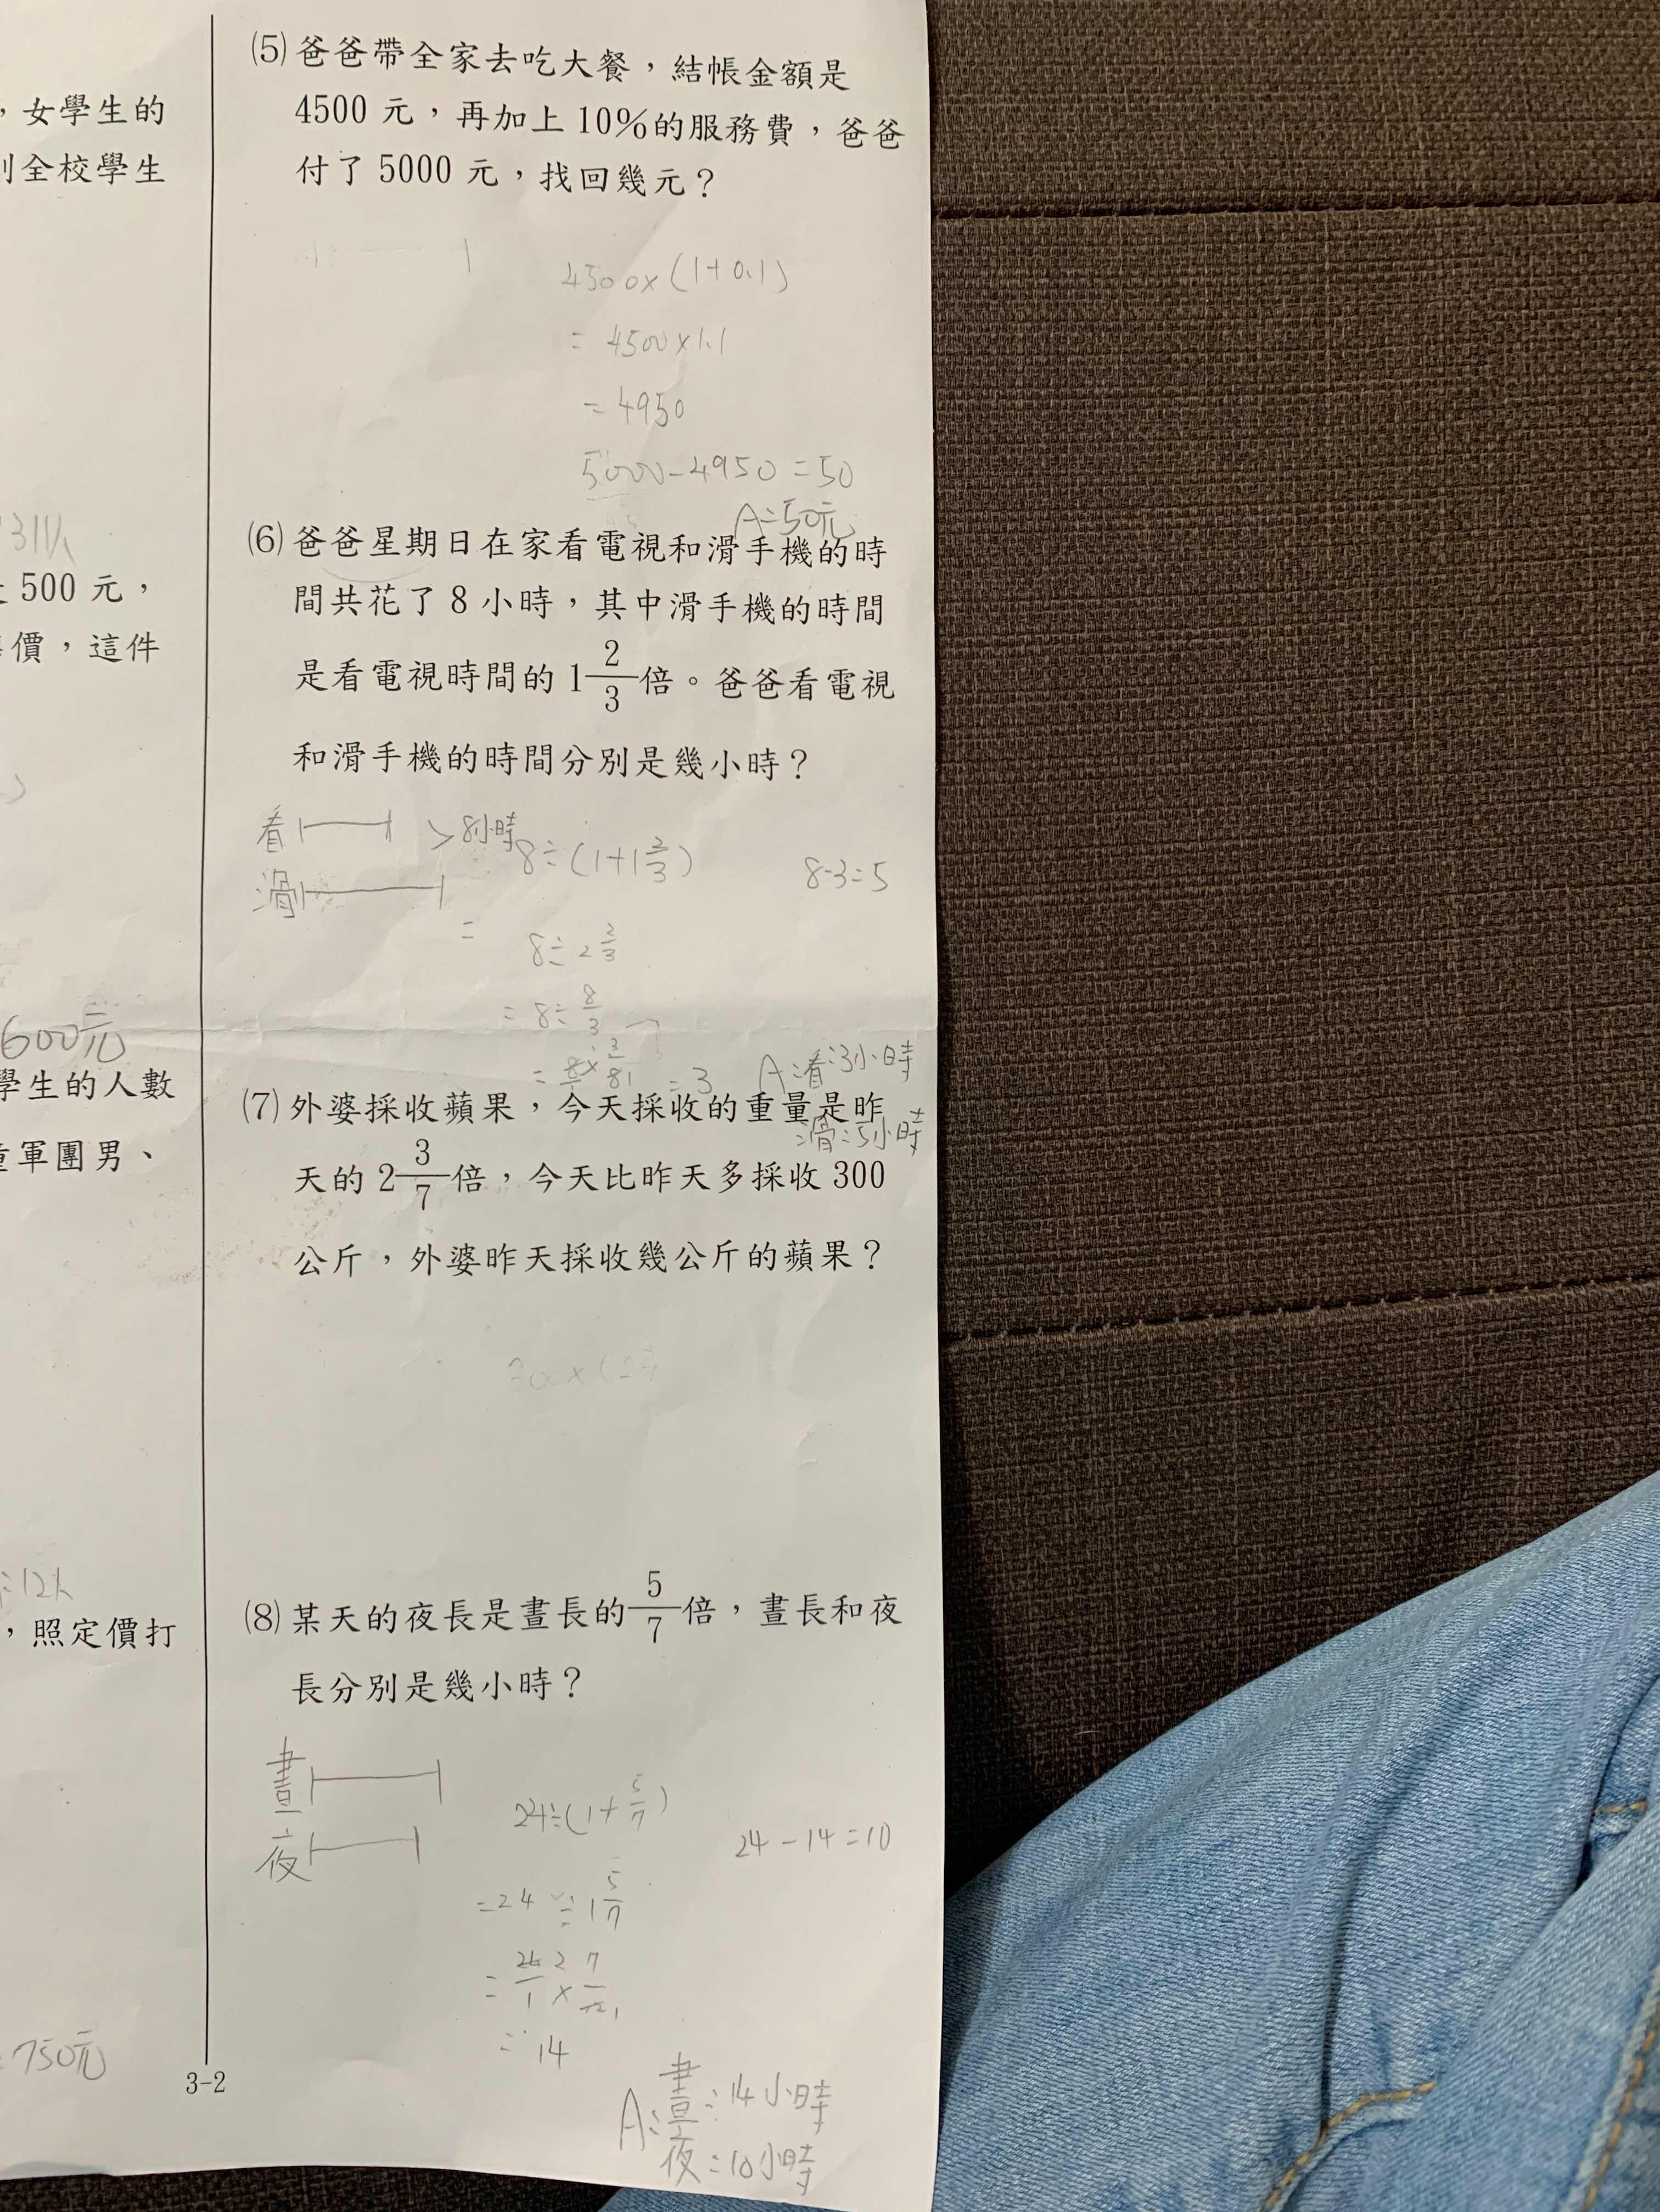 ，女學生的
全校學生
311人
500 元，
價，這件
600元
學生的人數
軍團男、
12人
，照定價打
750元
3-2
(5) 爸爸帶全家去吃大餐，結帳金額是
4500 元，再加上 10%的服務費，爸爸
付了 5000 元，找回幾元？
4500×(1+0.1)
= 4500×1.1
= 4950
5000-4950=50
A=50元
(6) 爸爸星期日在家看電視和滑手機的時
間共花了 8 小時，其中滑手機的時間
是看電視時間的 1 2/3 倍。爸爸看電視
和滑手機的時間分別是幾小時？
看 > 8小時
滑
8÷(1+1 2/3)
8-3=5
= 8÷2 2/3
= 8÷8/3
= 8/1×3/8 1 = 3
A:看:3小時
滑:5小時
(7) 外婆採收蘋果，今天採收的重量是昨
天的 2 3/7 倍，今天比昨天多採收 300
公斤，外婆昨天採收幾公斤的蘋果？
300×(2
(8) 某天的夜長是晝長的 5/7 倍，晝長和夜
長分別是幾小時？
晝
夜
24÷(1+5/7)
24-14=10
=24÷1 5/7
= 24/1 2 × 7/12 1
= 14
A:晝:14小時
夜:10小時